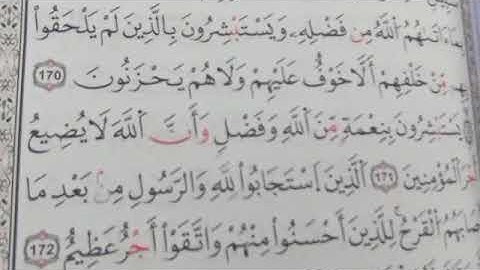 بِمَآ ءَاتَىٰهُمُ ٱللَّهُ مِن فَضْلِهِۦ وَيَسْتَبْشِرُونَ بِٱلَّذِينَ لَمْ يَلْحَقُوا۟
بِهِم مِّنْ خَلْفِهِمْ أَلَّا خَوْفٌ عَلَيْهِمْ وَلَا هُمْ يَحْزَنُونَ 170
يَسْتَبْشِرُونَ بِنِعْمَةٍ مِّنَ ٱللَّهِ وَفَضْلٍ وَأَنَّ ٱللَّهَ لَا يُضِيعُ
أَجْرَ ٱلْمُؤْمِنِينَ 171 ٱلَّذِينَ ٱسْتَجَابُوا۟ لِلَّهِ وَٱلرَّسُولِ مِنۢ بَعْدِ مَآ
أَصَابَهُمُ ٱلْقَرْحُ لِلَّذِينَ أَحْسَنُوا۟ مِنْهُمْ وَٱتَّقَوْا۟ أَجْرٌ عَظِيمٌ 172